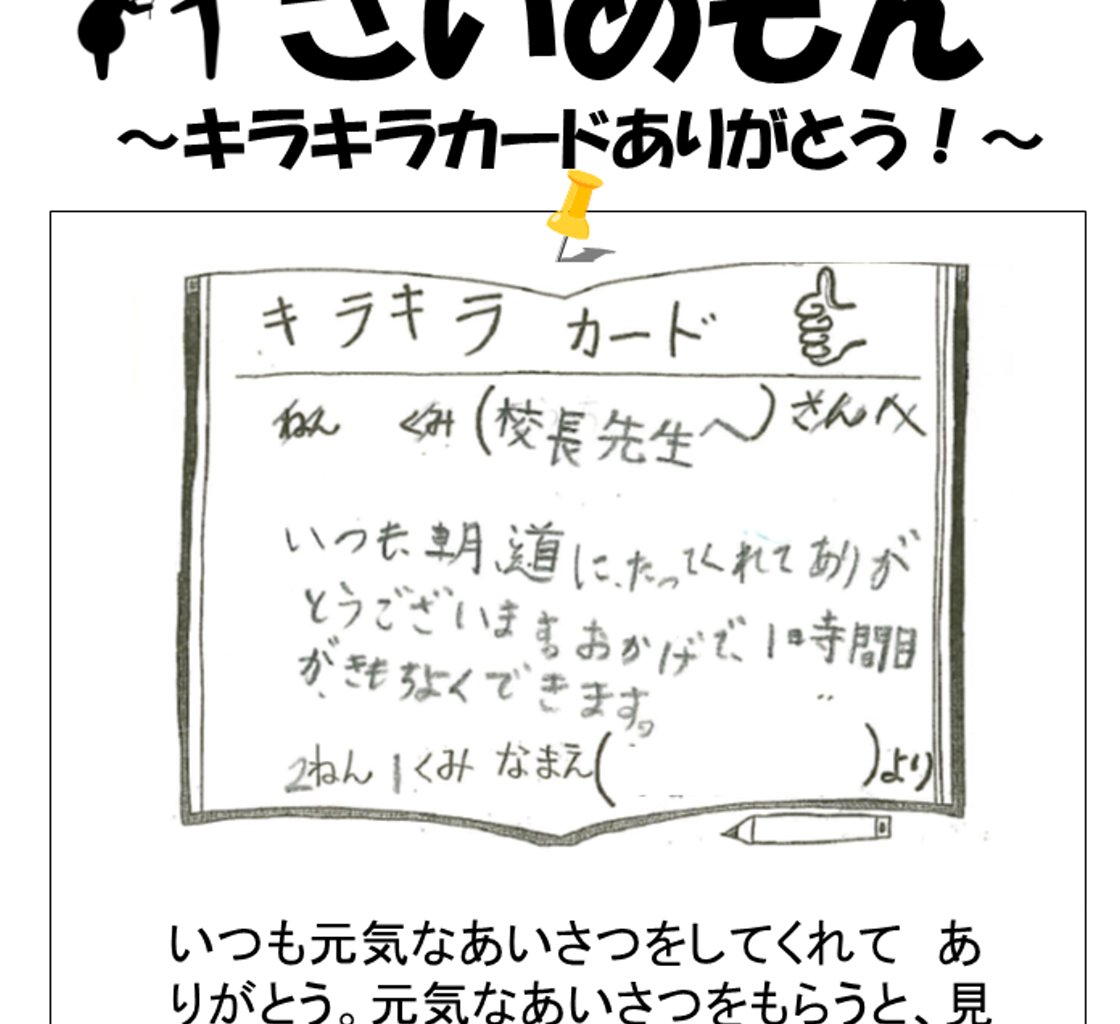 さいのもん
～キラキラカードありがとう！～
キラキラ カード
ねん くみ (校長先生へ) さんへ
いつも朝、道に、たってくれてありが
とうございます。おかげで、1時間目
がきもちよくできます。
2ねん1くみ なまえ( )より
いつも元気なあいさつをしてくれて　あ
りがとう。元気なあいさつをもらうと、見